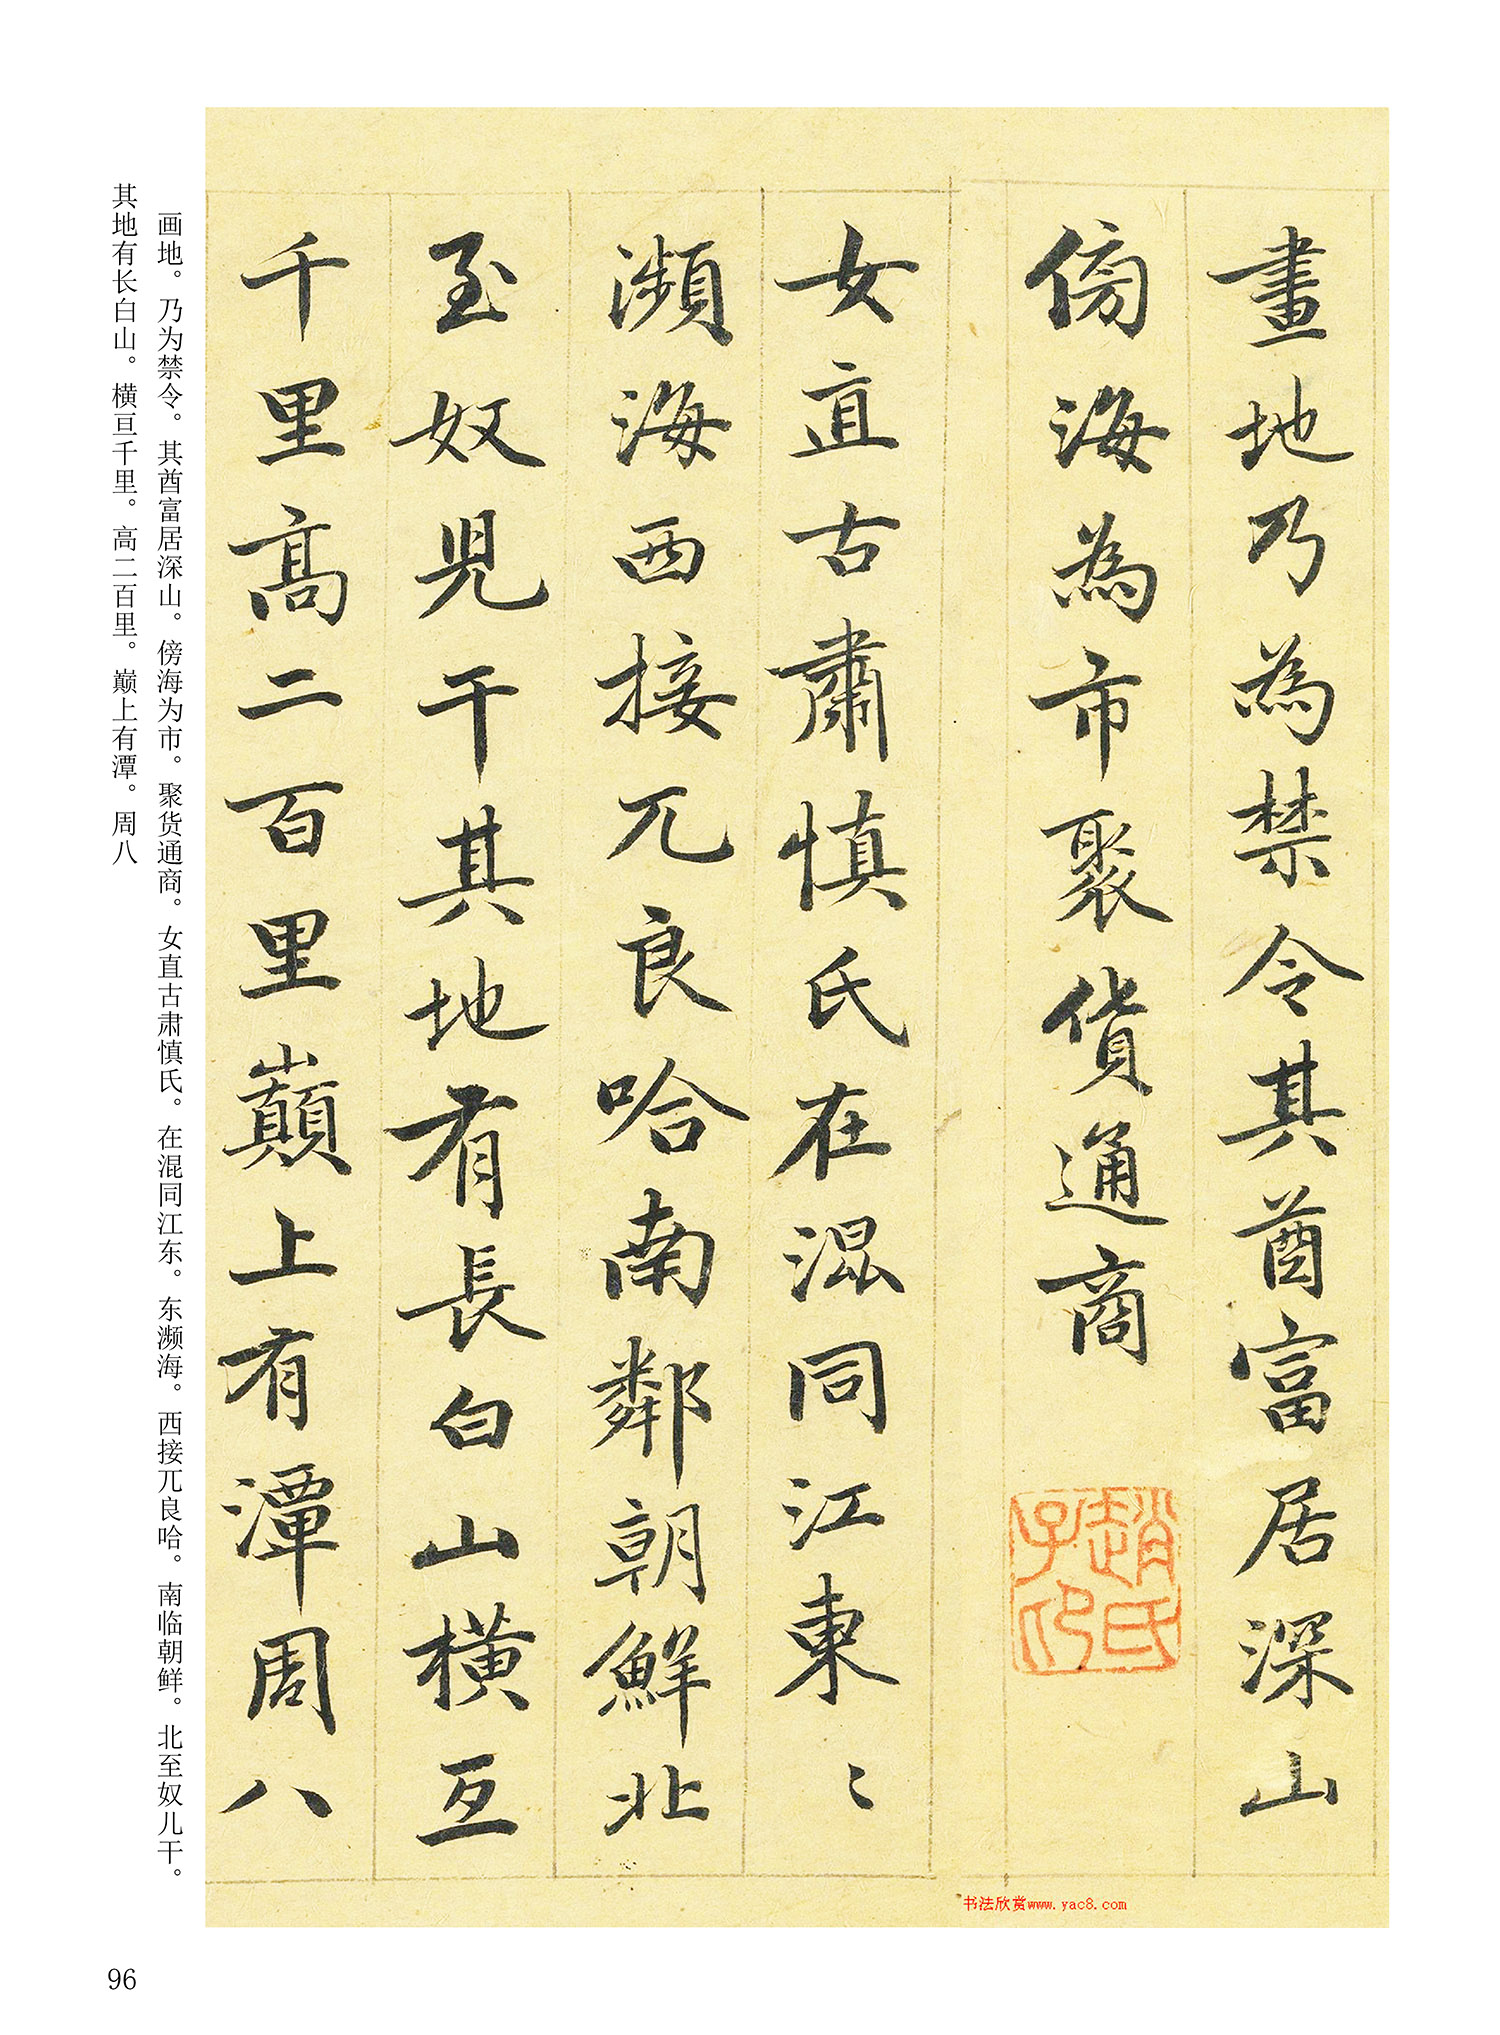 畫地乃為禁令其酋富居深山
傍海為市聚貨通商
趙氏子印
女直古肅慎氏在混同江東〻
瀕海西接兀良哈南鄰朝鮮北
至奴児干其地有長白山橫亙
千里高二百里巔上有潭周八
书法欣赏www.yac8.com
画地。乃为禁令。其酋富居深山。傍海为市。聚货通商。女直古肃慎氏。在混同江东。东濒海。西接兀良哈。南临朝鲜。北至奴儿干。
其地有长白山。横亘千里。高二百里。巅上有潭。周八
96